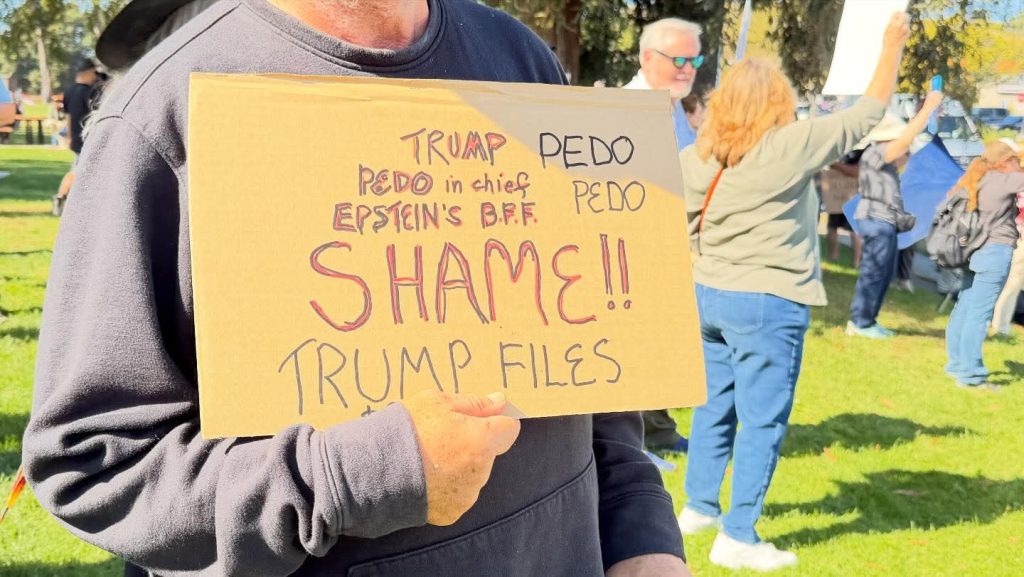 TRUMP PEDO
PEDO in chief PEDO
EPSTEIN'S B.F.F.
SHAME!!
TRUMP FILES